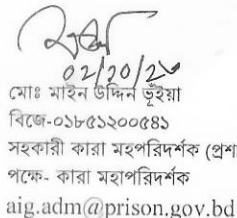 02/10/23
মোঃ মাইন উদ্দিন ভূঁইয়া
বিজে-০১৮৫১২০০৫৪১
সহকারী কারা মহপরিদর্শক (প্রশা
পক্ষে- কারা মহাপরিদর্শক
aig.adm@prison.gov.bd